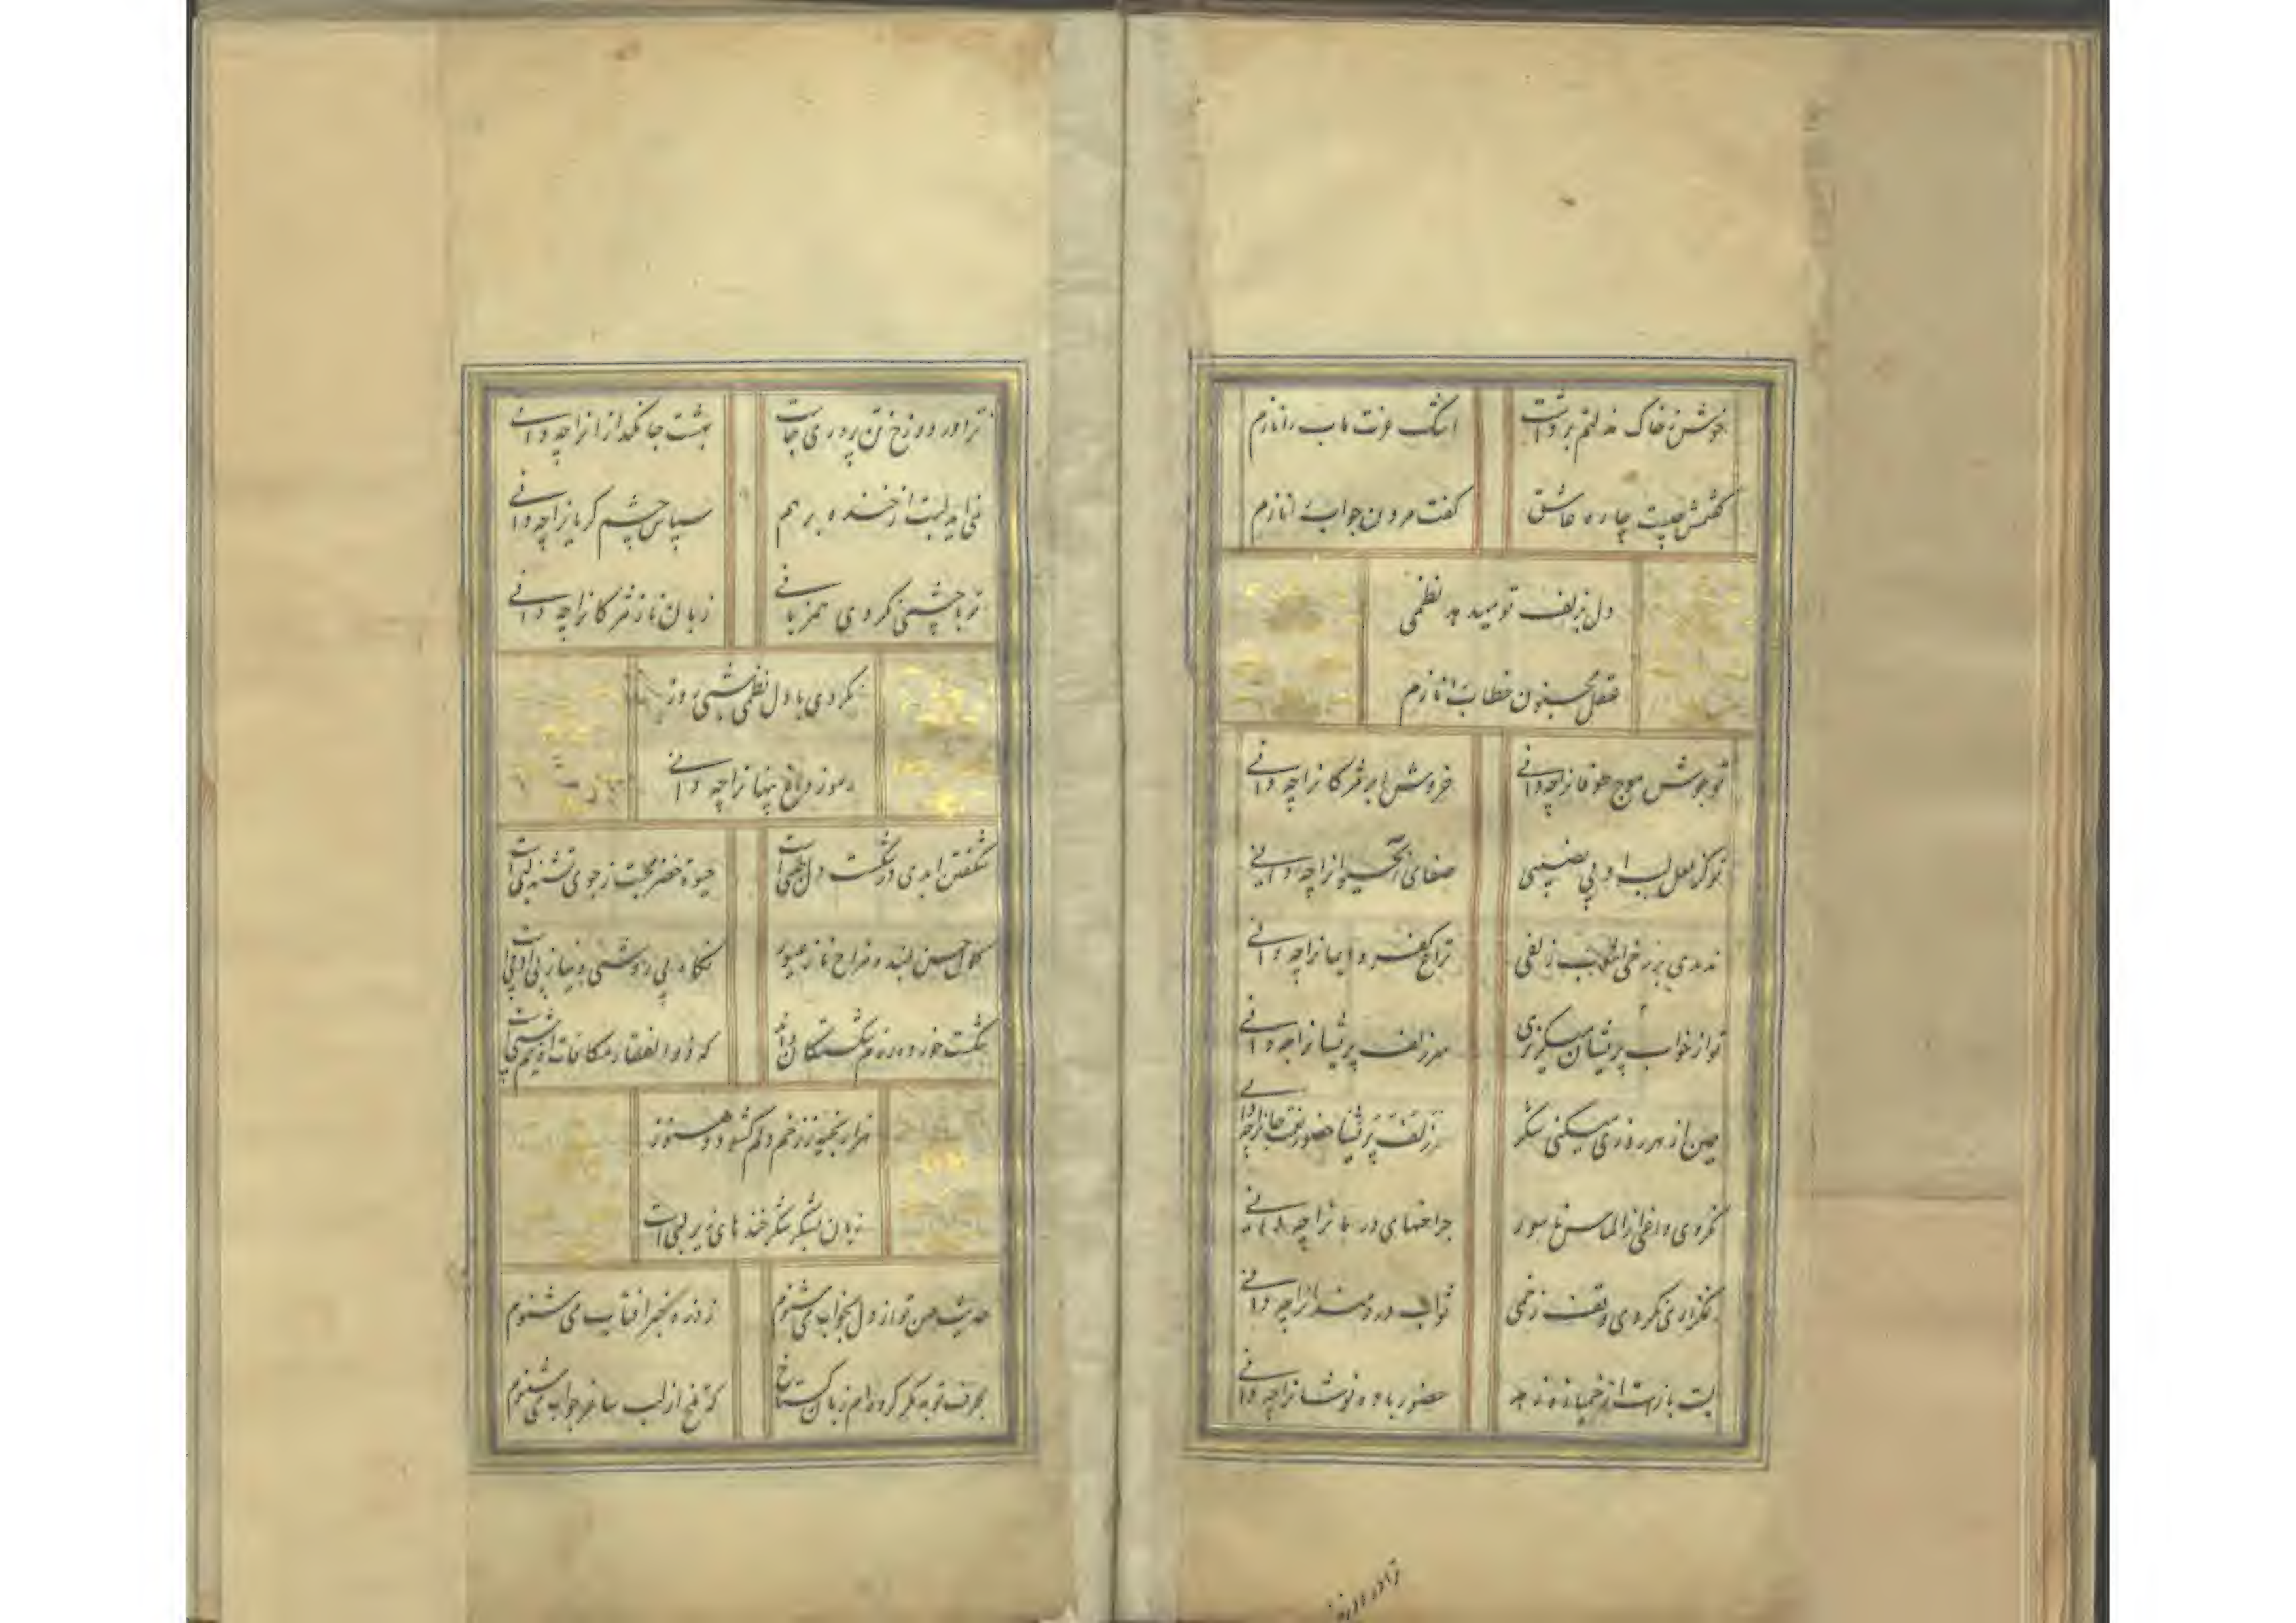 خوش ز خاک مذلتم برداشت
اشک عزت ماب را نازم
گفتمش چیست چاره عاشق
گفت مردن جواب را نازم
دل بزلف تو میدهد نظمی
عقل مجنون خطاب را نازم
تو جوش موج طوفانرا چه دانی
خروش ابر مژکانرا چه دانی
تو کز لعل لب او بی نصیبی
صفای آب حیوانرا چه دانی
ندیدی بر رخی زلفی
تراغ کفر و ایمانرا چه دانی
تو از خواب پریشان میکریزی
سر زلف پریشانرا چه دانی
من از هر روزی میکنی شکر
سر زلف پریشا حضور
نکردی داغی از الماس ناسور
جراحتهای درمانرا چه
نمکزاری نکردی وقف زخمی
ثواب دردمندانرا چه دانی
لبت بازست از خمیازه زهد
حضور باده نوشانرا چه دانی
ترا در دوزخ
ترا در دوزخ تن پروری جاست
بهشت جانکدازانرا چه دانی
نمی اید لبت از خنده بر هم
سپاس چشم کریانرا چه دانی
تو با چشمی نکردی همزبانی
زبان ناز مژکانرا چه دانی
نکردی با دل نظمی شبی روز
رموز داغ پنهانرا چه دانی
شکفتن ابدی در شکست دل طلبی است
حیوة خضر محبت ز جوی تشنه لبی است
کلاه حسن بلند و مزاج ناز غیور
نکاه بی روشی و نیاز بی ادبی است
شکست خورده رزم شکستکان داند
که ذوالفقار مکافات آه نیم شبی است
هزار بخیه ز زخم دلم کشود و هنوز
زبان بشکر شکرخندهای زیر لبی است
حدیث حسن تو از دل بخواب می شنوم
ز ذره خبر افتاب می شنوم
بحرف توبه مکر کرده ام زبان کستاخ
که تلخ از لب ساغر جواب می شنوم